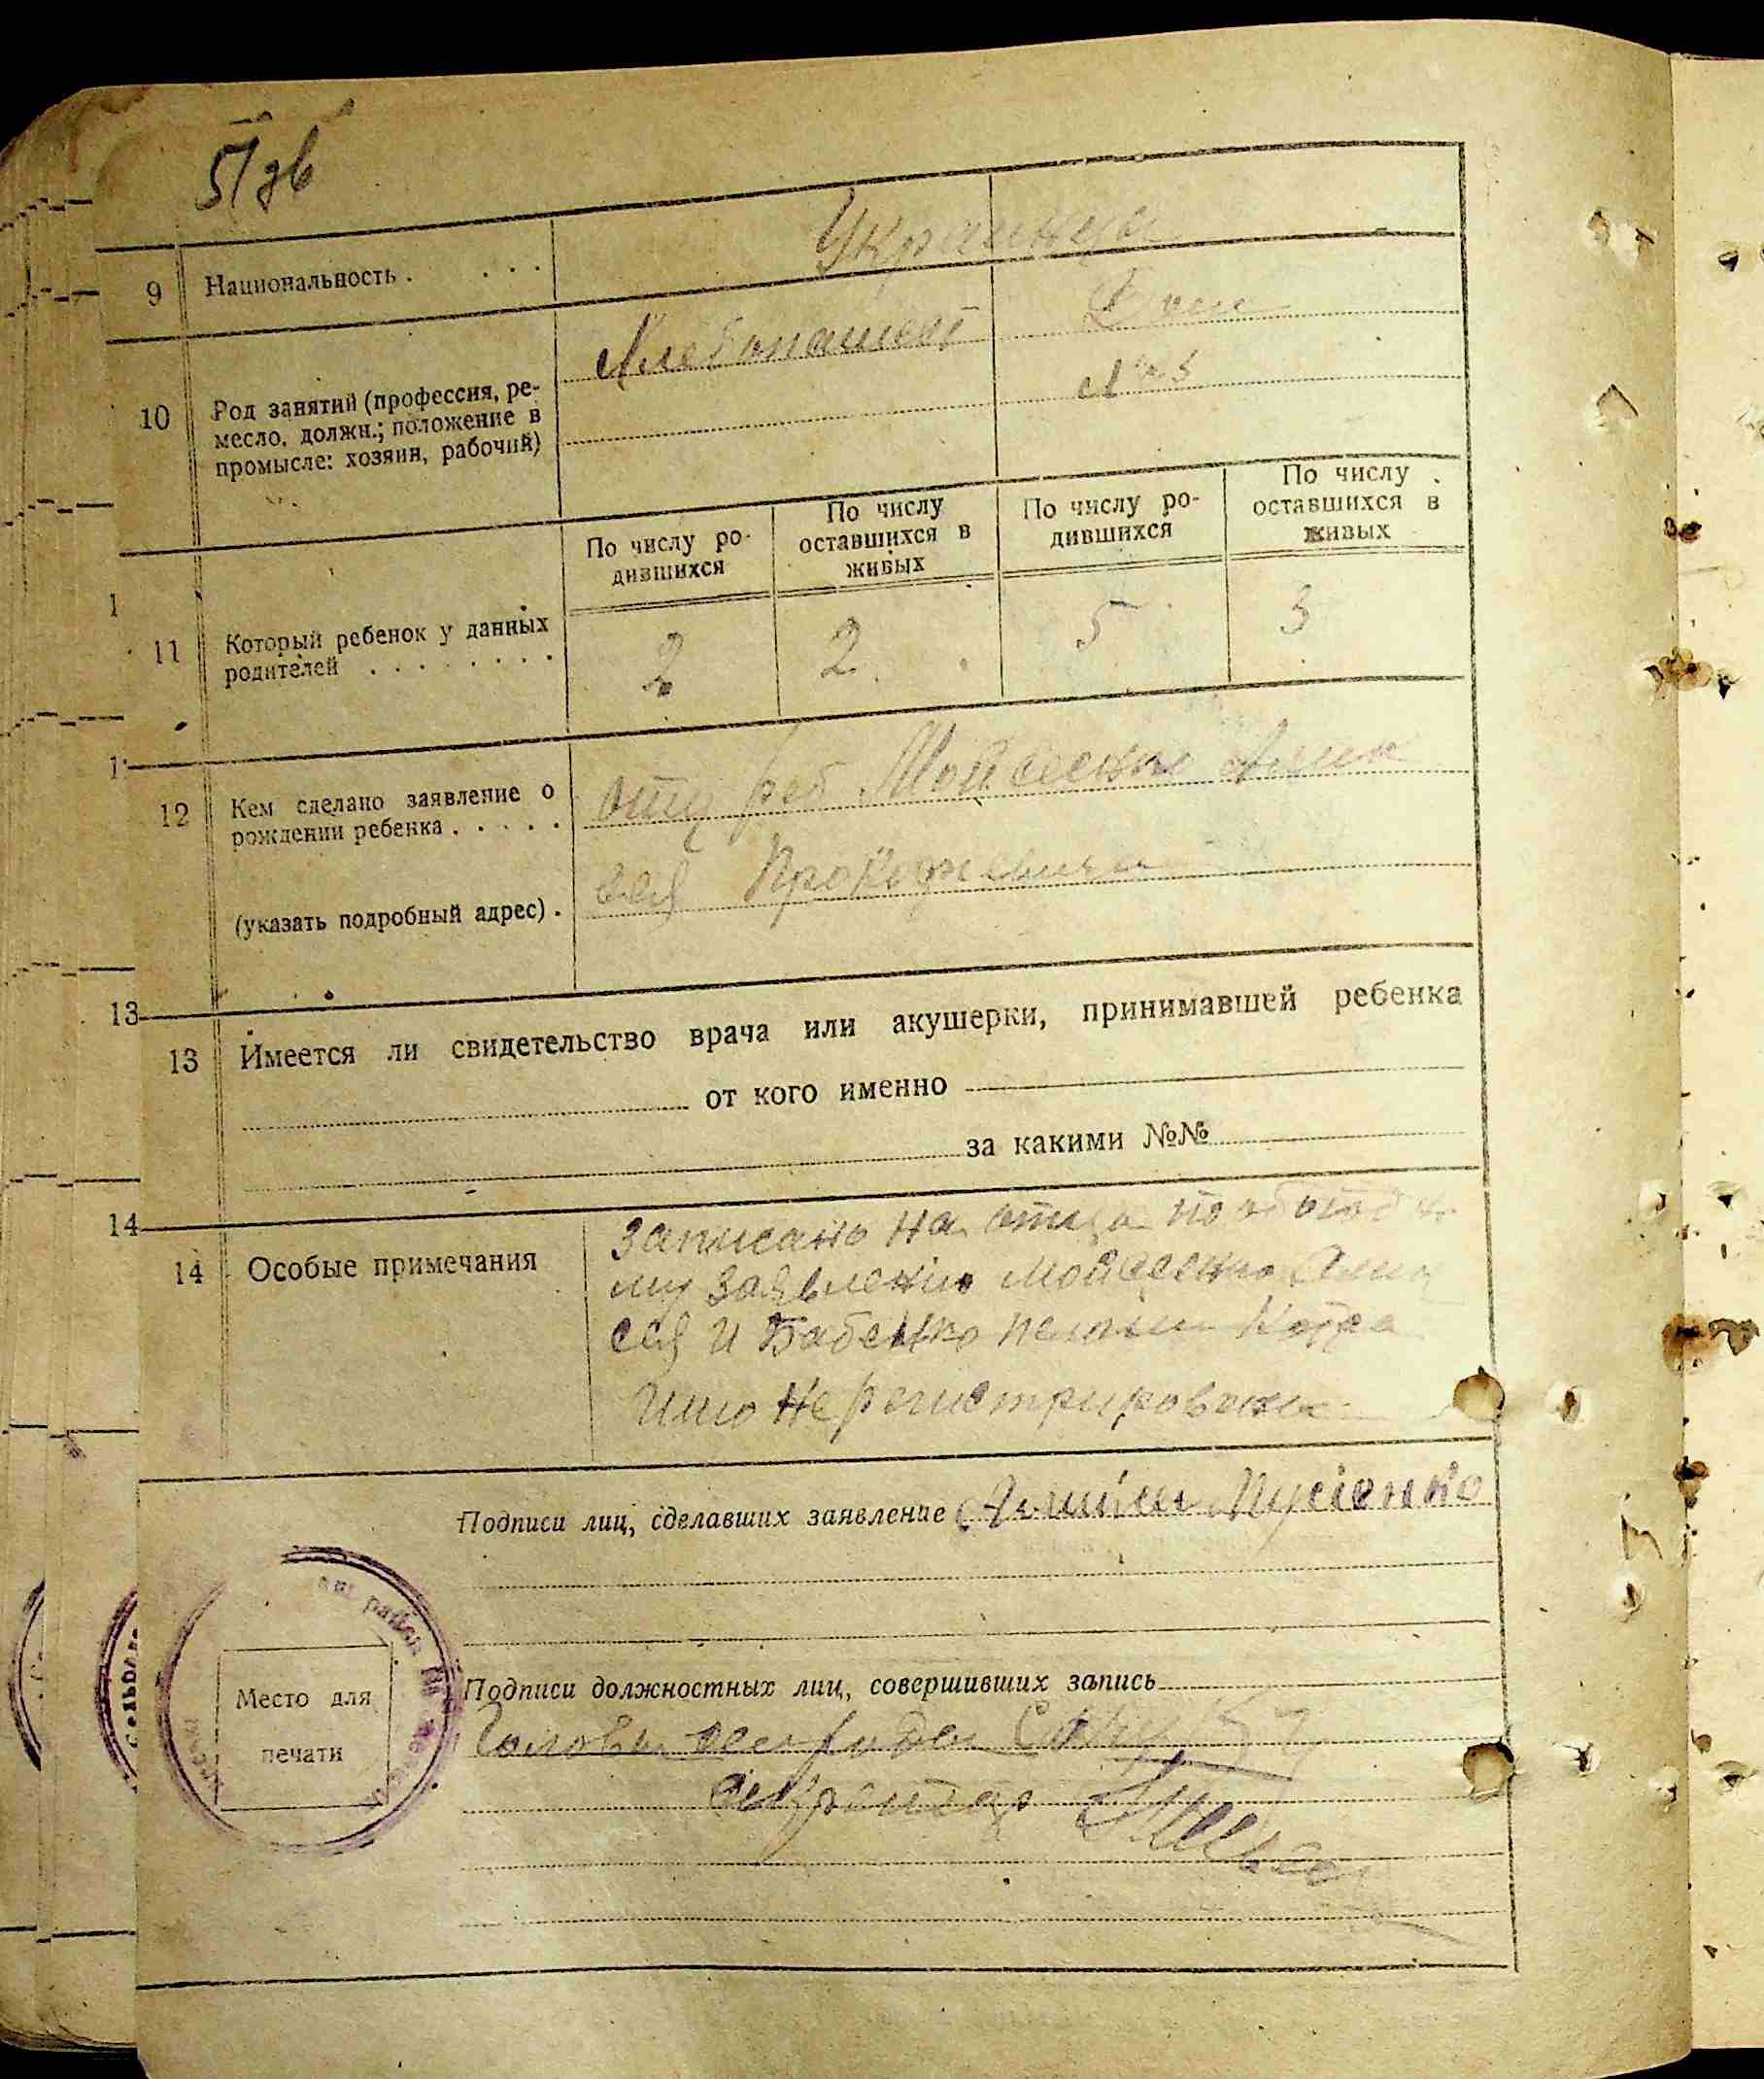 51 зв
9 Национальность . . . . Украинцы
10 Род занятий (профессия, ре-
месло, должн.; положение в
промысле: хозяин, рабочий)
Хлебопашест Дом
хоз
По числу ро-
дившихся
По числу
оставшихся в
живых
По числу ро-
дившихся
По числу
оставшихся в
живых
1
11 Который ребенок у данных
родителей . . . . . . . .
2 2 5 3
1
12 Кем сделано заявление о
рождении ребенка . . . . .
отц реб Мойсеенко
(указать подробный адрес) .
сей Прокофиевичем
13
13 Имеется ли свидетельство врача или акушерки, принимавшей ребенка
от кого именно
за какими №№
14
14 Особые примечания
записано на отца по
му заявлению Мойсеенко
сей и Бабенко
не регистрирован
Подписи лиц, сделавших заявление
Место для
печати
район
Подписи должностных лиц, совершивших запись
Голова сельради
секретар